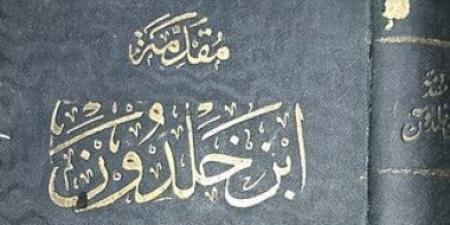 مُقَدِّمَة
ابْن خَلْدُونَ
مقدمة
ابن خلدون